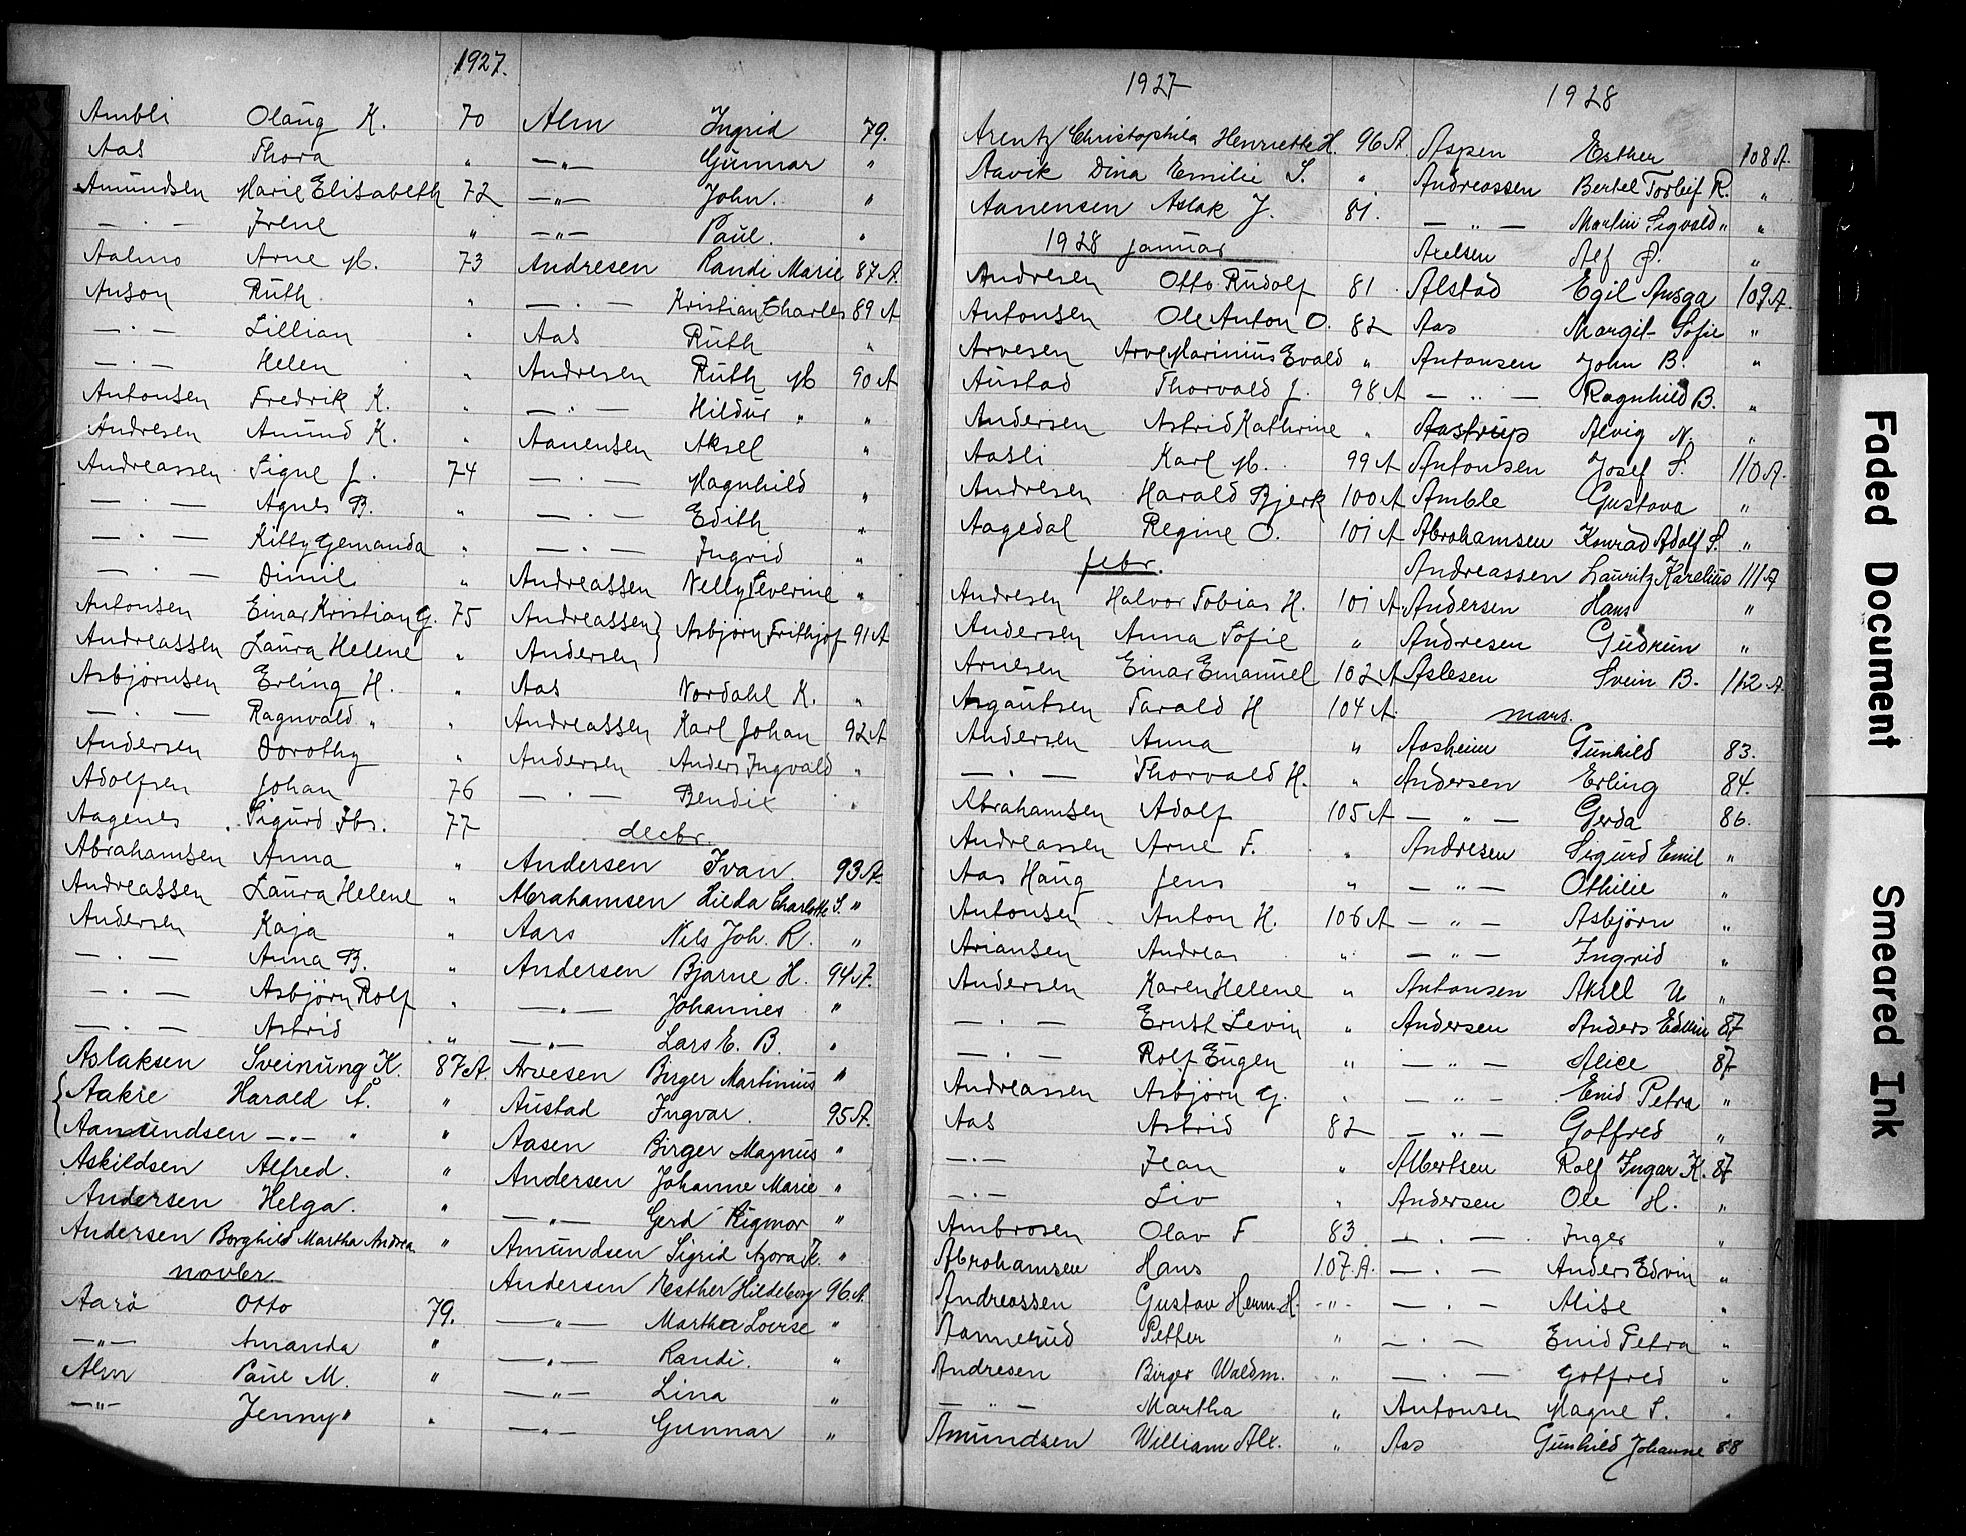 1927.
Ambli Olaug K. 70
Aas Thora "
Amundsen Marie Elisabeth 72
— · — Irene "
Aalmo Arne M. 73
Anson Ruth "
— · — Lillian "
— · — Helen "
Antonsen Fredrik K. "
Andresen Amund K. "
Andreassen Signe J. 74
— · — Agnes B. "
— · — Killy Gemanda "
— · — Dimil "
Antonsen Einar Kristian G. 75
Andreassen Laura Helene "
Asbjørnsen Erling H. "
— · — Ragnvald " "
Andersen Dorothy "
Adolfsen Johan 76
Aagenes Sigurd Ibs. 77
Abrahamsen Anna "
Andreassen Laura Helene "
Andersen Kaja "
— · — Anna B. "
— · — Asbjörn Rolf "
— · — Astrid "
Aslaksen Sveinung K. 87 A.
Aakre Harald Å. "
Aamundsen — " — " "
Askildsen Alfred. "
Andersen Helga. "
Andersen Borghild Martha Andrea "
novbr.
Aarö Otto 79.
— " — Amanda "
Alm Paul M. "
— " — Jenny " "
Alm Ingrid 79.
— " — Gunnar "
— " — John. "
— " — Paul. "
Andresen Randi Marie 87 A.
— · — Kristian Charles 89 A
Aas Ruth "
Andresen Ruth M 90 A
— · — Hildur " "
Aanensen Aksel "
— · — Magnhild "
— · — Edith "
— · — Ingrid "
Andreassen Nelly Severine "
Andreassen } Asbjörn Frithjof 91 A
Andersen }
Aas Nordahl K. "
Andreassen Karl Johan 92 A
Andersen Anders Ingvald "
— · — Bendix "
decbr.
Andersen Ivan. 93 A.
Abrahamsen Hilda Charlotte S. "
Aars Nils Joh. R. "
Andersen Bjarne H. 94 A.
— " — Johannes "
— " — Lars E. B. "
Arvesen Birger Martinius "
Austad Ingvar. 95 A.
Aasen Birger Magnus "
Andersen Johanne Marie "
— " — Gerd Rigmor "
Amundsen Sigrid Azora K. "
Andersen Esther Hildeborg 96 A.
— " — Martha Lovise "
— " — Randi. "
— " — Lina "
— " — Gunnar "
1927
Arentz Christophila Henriette H. 96 A.
Aavik Dina Emilie S. "
Aanensen Aslak J. 81.
1928 januar
Andresen Otto Rudolf 81
Antonsen Ole Anton O. 82
Arvesen Arve Marinius Evald "
Austad Thorvald J. 98 A
Andersen Astrid Kathrine "
Aasli Karl M. 99 A
Andresen Harald Bjerk 100 A
Aagedal Regine O. 101 A
febr.
Andresen Halvor Tobias H. 101 A.
Andersen Anna Sofie "
Arnesen Einar Emanuel 102 A
Asgautsen Tarald H 104 A.
Andersen Anna "
— · — Thorvald H. "
Abrahamsen Adolf 105 A
Andreassen Arne F. "
Aas Haug Jens "
Antonsen Anton H. 106 A
Ariansen Andrea "
Andersen Karen Helene "
— · — Ernst Levin "
— · — Rolf Eugen "
Andreassen Asbjörn G. "
Aas Astrid 82
— · — Jean "
— · — Liv "
Ambrosen Olav F 83
Abrahamsen Hans 107 A.
Andreassen Gustav Herm. H. - " -
Aannerud Petter "
Andresen Birger Waldm. "
— " — Martha "
Amundsen William Alx. "
1928
Aspen Esther 108 A.
Andreassen Bertel Torleif R. "
— " — Martin Sigvald " "
Axelsen Alf P. "
Alstad Egil Ansga 109 A.
Aas Margit Sofie "
Antonsen John B. "
— " — Ragnhild B. "
Aastrup Alvig N. "
Antonsen Josef S. 110 A.
Amble Gustava "
Abrahamsen Konrad Adolf S. "
Andreassen Lauritz Karelius 111 A
Andersen Hans "
Andresen Gudrun "
Aslesen Svein B. 112 A.
mars.
Aasheim Gunhild 83.
Andersen Erling 84.
— " — Gerda 86.
Andresen Sigurd Emil "
— " — Othilie "
— " — Asbjörn "
— " — Ingrid "
Antonsen Aksel U "
Andersen Anders Edvin 87
— " — Alice 87
— " — Enid Petra "
— " — Gotfred "
Albertsen Rolf Ingar K. 87
Andersen Ole H. "
— · — Inger "
— · — Anders Edvin "
— · — Alise "
— · — Enid Petra "
— · — Gotfred "
Antonsen Magne S. "
Aas Gunhild Johanne 88
Faded Document
Smeared Ink